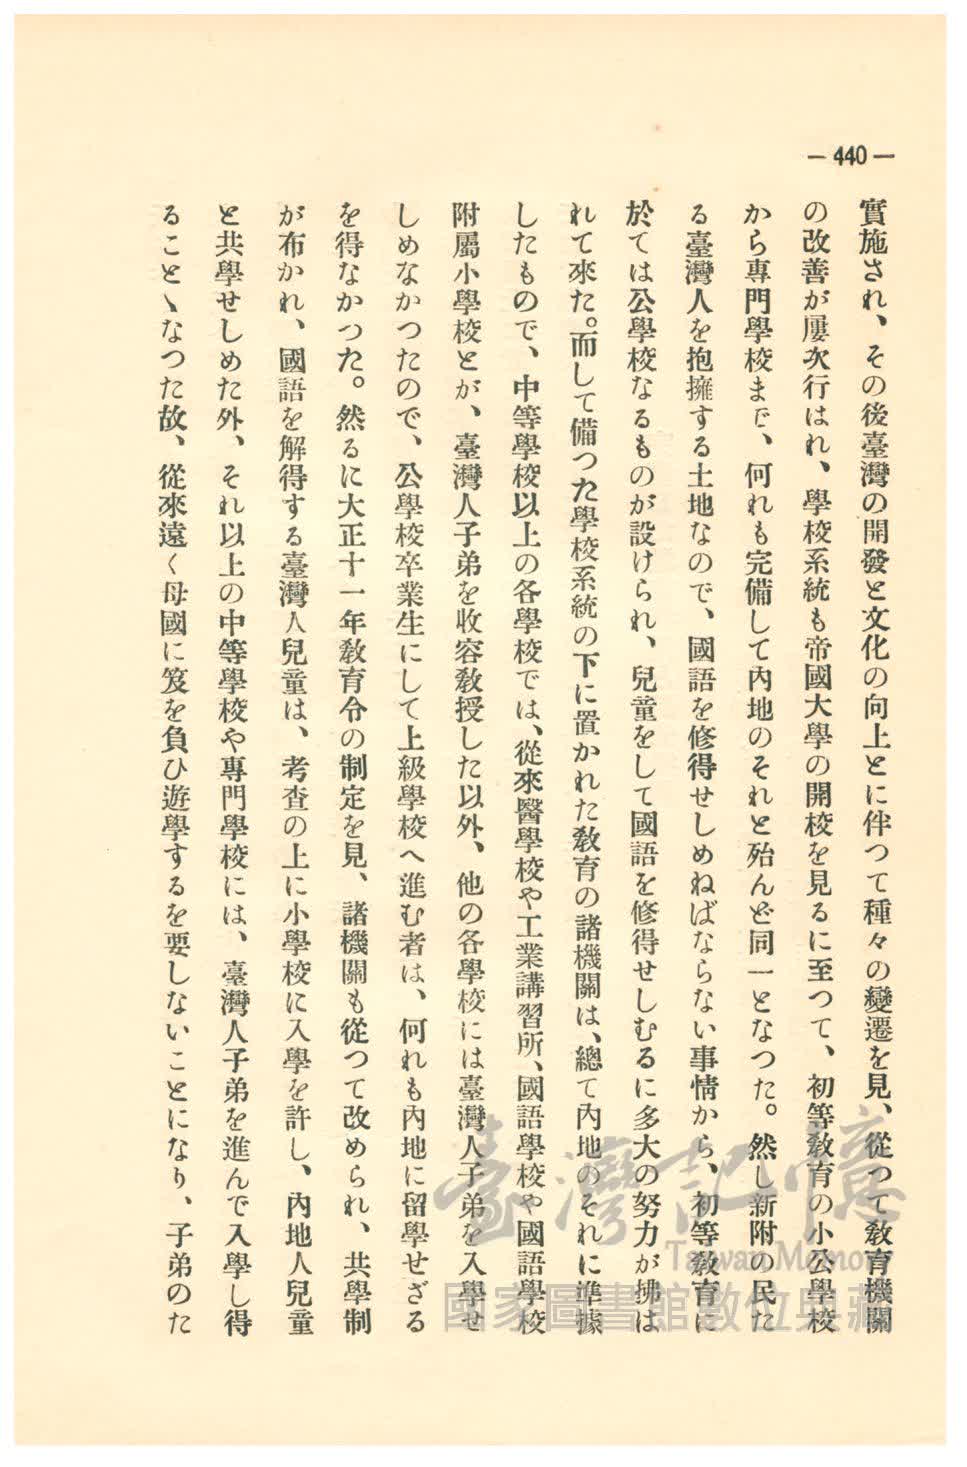 — 440 —
實施され、その後臺灣の開發と文化の向上とに伴つて種々の變遷を見、從つて教育機關
の改善が屢次行はれ、學校系統も帝國大學の開校を見るに至つて、初等教育の小公學校
から專門學校まで、何れも完備して内地のそれと殆んど同一となつた。然し新附の民た
る臺灣人を抱擁する土地なので、國語を修得せしめねばならない事情から、初等教育に
於ては公學校なるものが設けられ、兒童をして國語を修得せしむるに多大の努力が拂は
れて來た。而して備つた學校系統の下に置かれた教育の諸機關は、總て内地のそれに準據
したもので、中等學校以上の各學校では、從來醫學校や工業講習所、國語學校や國語學校
附屬小學校とが、臺灣人子弟を收容教授した以外、他の各學校には臺灣人子弟を入學せ
しめなかつたので、公學校卒業生にして上級學校へ進む者は、何れも内地に留學せざる
を得なかつた。然るに大正十一年教育令の制定を見、諸機關も從つて改められ、共學制
が布かれ、國語を解得する臺灣人兒童は、考査の上に小學校に入學を許し、内地人兒童
と共學せしめた外、それ以上の中等學校や專門學校には、臺灣人子弟を進んで入學し得
ることゝなつた故、從來遠く母國に笈を負ひ遊學するを要しないことになり、子弟のた
臺灣記憶
Taiwan Memory
國家圖書館數位典藏